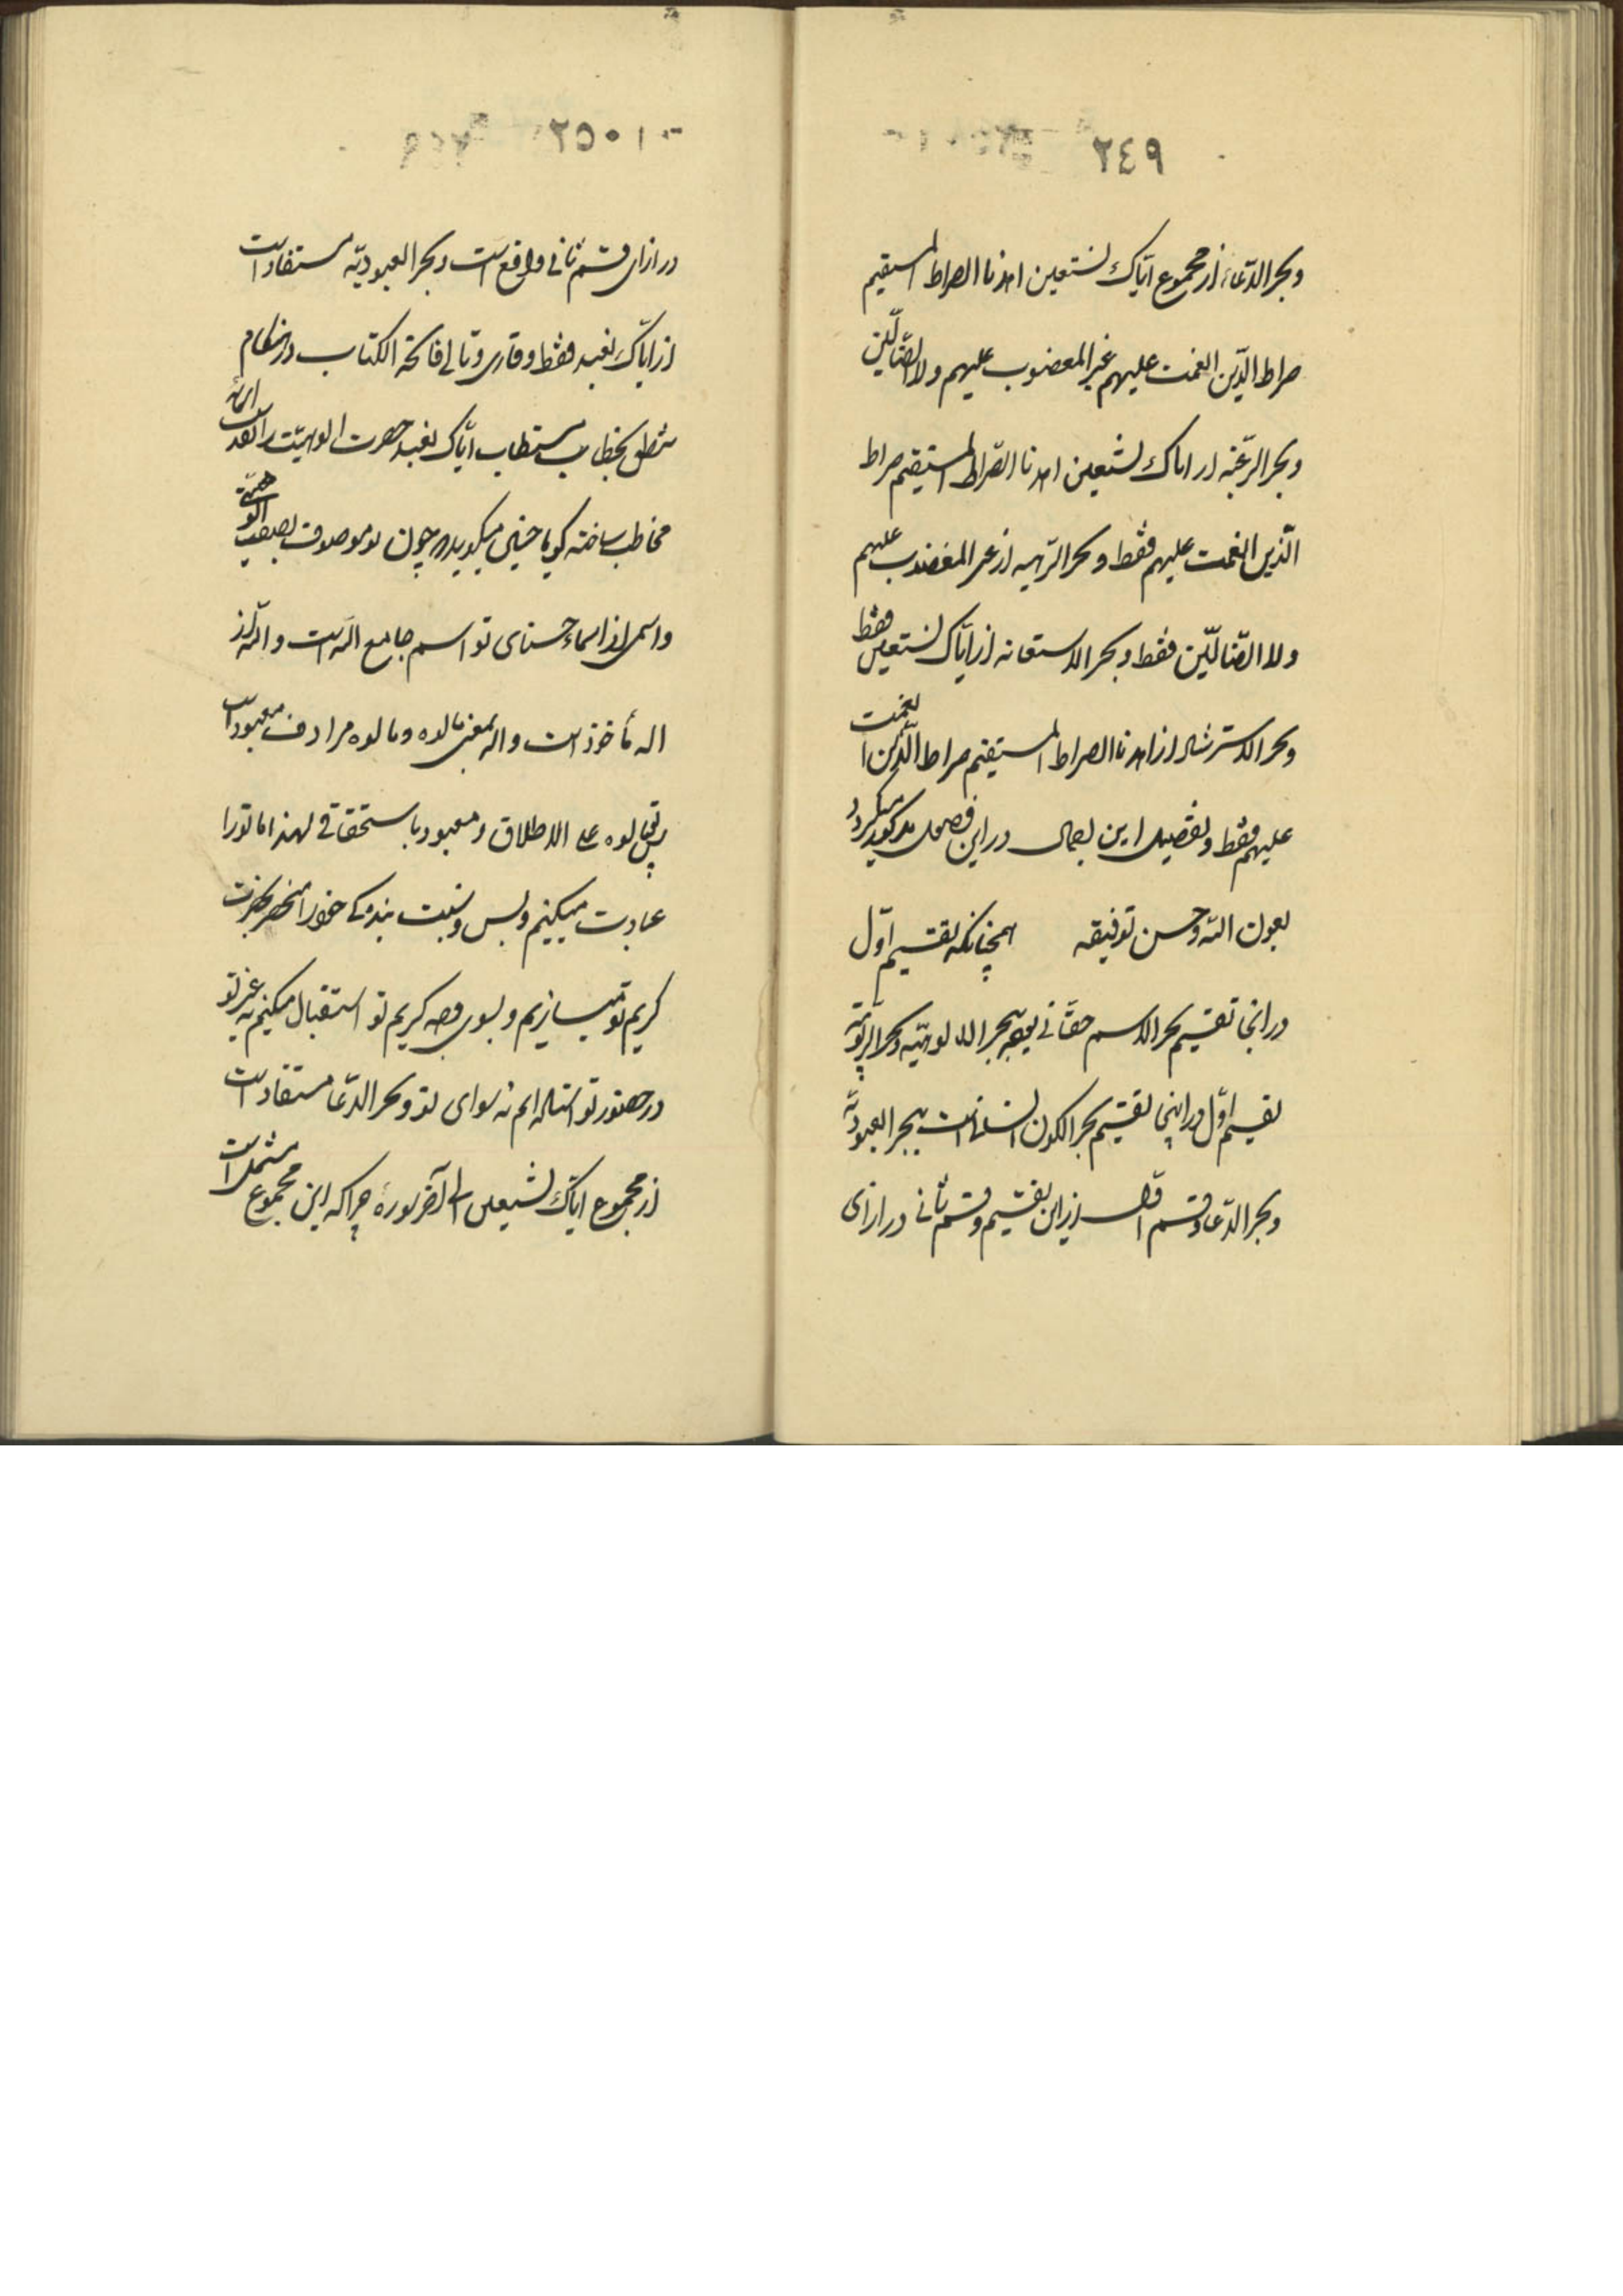 ٢٤٩
وبحر الدّعاء از مجموع ایّاک نستعین اهدنا الصراط المستقیم
صراط الّذین انعمت علیهم غیر المغضوب علیهم ولا الضّالّین
وبحر الرّغبه از ایاک نستعین اهدنا الصّراط المستقیم صراط
الّذین انعمت علیهم فقط وبحر الرّهبه از غیر المغضوب علیهم
ولا الضّالّین فقط وبحر الاستعانه از ایّاک نستعین فقط
وبحر الاسترشاد از اهدنا الصراط المستقیم صراط الّذین انعمت
علیهم فقط وتفصیل این اجمال در این فصل مذکور میگردد
بعون اللّه وحسن توفیقه همچنانکه تقسیم اوّل
در آنجا تقسیم بحر الاسم حقّانی بود ببحر الالوهیّه وبحر الرّبوبیّه
تقسیم اوّل در اینجا تقسیم بحر الکون انسانی است ببحر العبودیّه
وبحر الدّعا وقسم اوّل از این تقسیم وقسم ثانی در ازای
٢٥٠
در ازای قسم ثانی واقع است وبحر العبودیّه مستفاد است
از ایّاک نعبد فقط وقاری وتالی فاتحة الکتاب در هنگام
تنطق بخطاب مستطاب ایّاک نعبد حضرت الوهیّت را تقدّست اسمائه
مخاطب ساخته گویا چنین میگوید چون تو موصوف بصفت الوهیّتی
واسمی از اسماء حسنای تو اسم جامع اللّه است واللّه از
اله مأخوذ است واله بمعنی مالوه ومالوه مرادف معبود است
پس توئی مالوه علی الاطلاق ومعبود باستحقاق لهذا ما تو را
عبادت میکنیم وبس ونسبت بندگی خود را منحصر بحضرت
کریم تو میسازیم وبسوی وجه کریم تو استقبال میکنیم نه غیر تو
در حضور تو استاده ایم نه سوای تو وبحر الدّعا مستفاد است
از مجموع ایّاک نستعین الی آخر سوره چرا که این مجموع مشتمل است